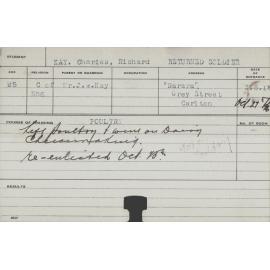 STUDENT
KAY, Charles, Richard RETURNED SOLDIER
AGE RELIGION PARENT OR GUARDIAN OCCUPATION ADDRESS DATE OF ENTRANCE
25 C of Eng Mr. J. Kay "Narara" Grey Street Carlton
COURSE OF TRAINING POULTRY NO. OF ROOM
Left Poultry & went on Dairy
Cheesemaking.
re-enlisted Oct
RESULTS